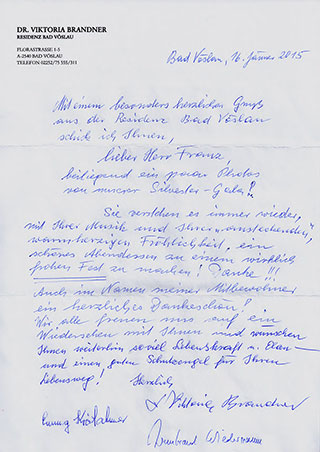 DR. VIKTORIA BRANDNER
RESIDENZ BAD VÖSLAU
FLORASTRASSE 1-5
A-2540 BAD VÖSLAU
TELEFON 02252/75 555/311
Bad Vöslau, 16. Jänner 2015
Mit einem besonders herzlichen Gruß
aus der Residenz Bad Vöslau
schick ich Ihnen,
lieber Herr Franz,
beiliegend ein paar Photos
von unserer Silvester-Gala!
Sie verstehen es immer wieder,
mit Ihrer Musik und Ihrer „ansteckenden",
warmherzigen Fröhlichkeit, ein
schönes Abendessen zu einem wirklich
frohen Fest zu machen! Danke !!!
Auch im Namen meiner Mitbewohner
ein herzliches Dankeschön!
Wir alle freuen uns auf ein
Wiedersehen mit Ihnen und wünschen
Ihnen weiterhin soviel Lebenskraft u. Elan –
und einen guten Schutzengel für Ihren
Lebensweg! Herzlich
Viktoria Brandner
Wiedermann